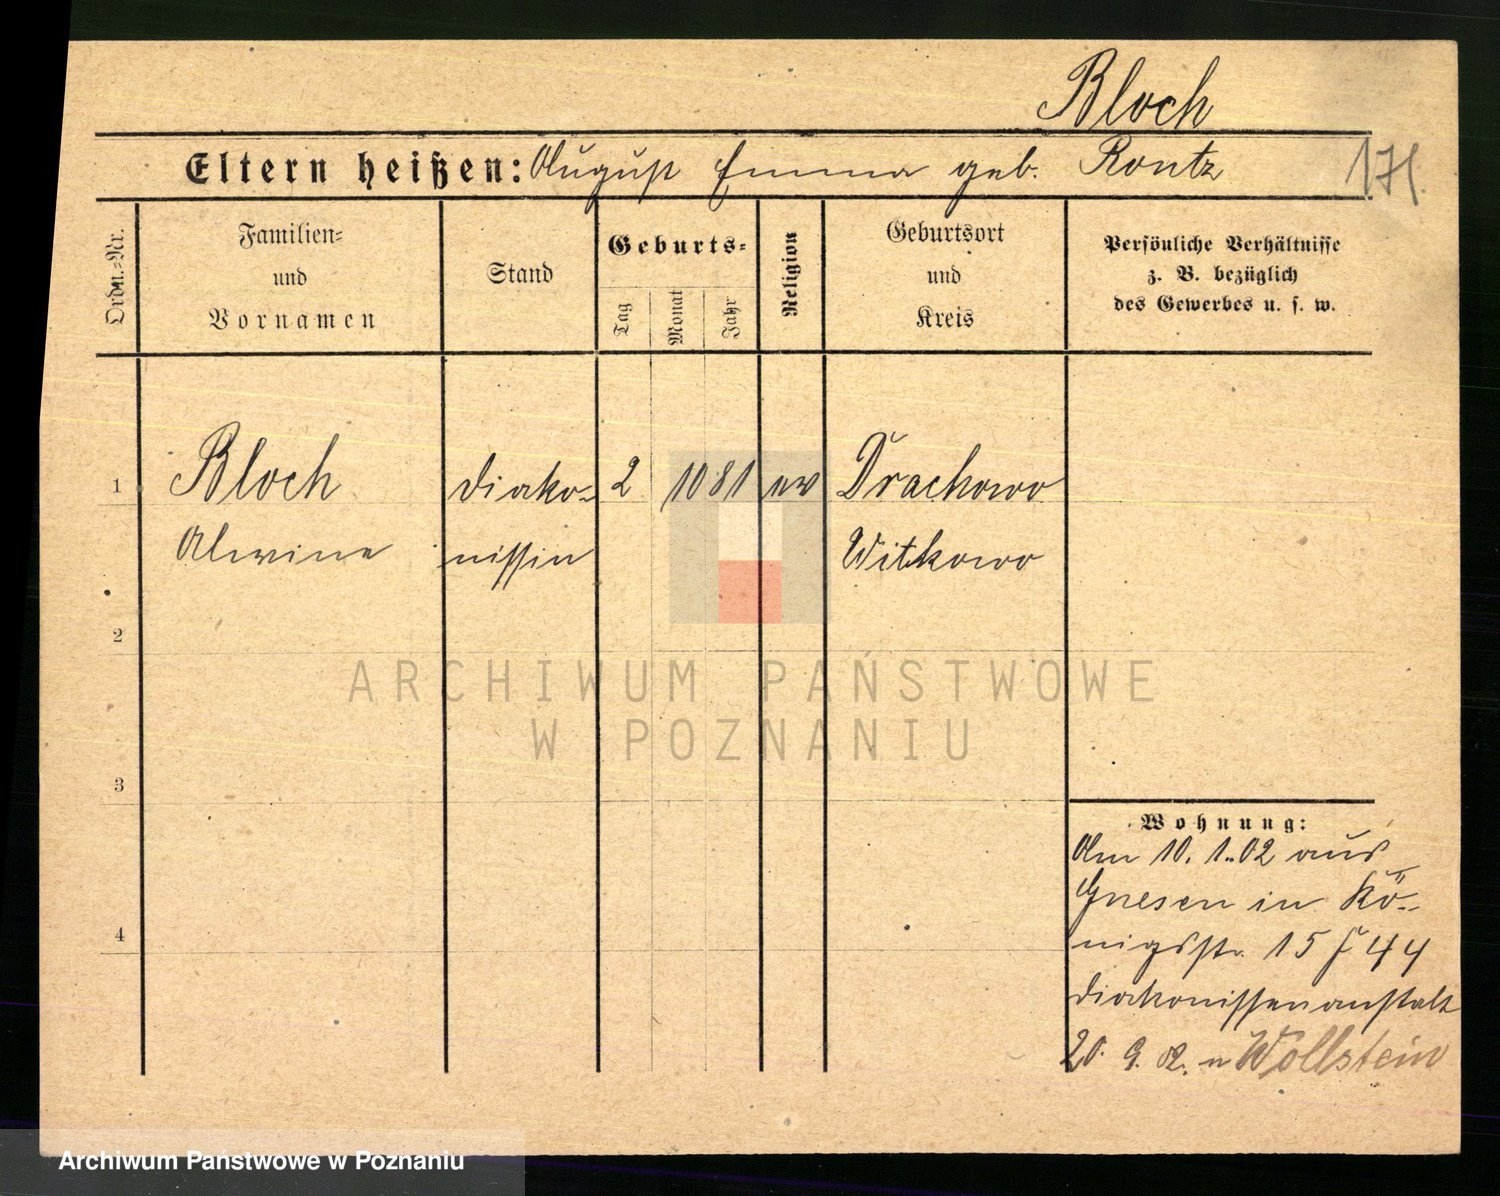 Bloch
Eltern heißen: August Emma geb. Rontz
171.
Ordn.-Nr.
Familien-
und
Vornamen
Stand
Geburts-
Tag
Monat
Jahr
Religion
Geburtsort
und
Kreis
Persönliche Verhältnisse
z. B. bezüglich
des Gewerbes u. s. w.
1 Bloch Diako- 2 10 81 ev Drachowo
Alwine nissin Witkowo
2
3
4
Wohnung:
Am 10. 1. 02 aus
Gnesen in Kö-
nigsstr. 15 F 44
Diakonissenanstalt
20. 9. 02. n Wollstein
ARCHIWUM PAŃSTWOWE
W POZNANIU
Archiwum Państwowe w Poznaniu